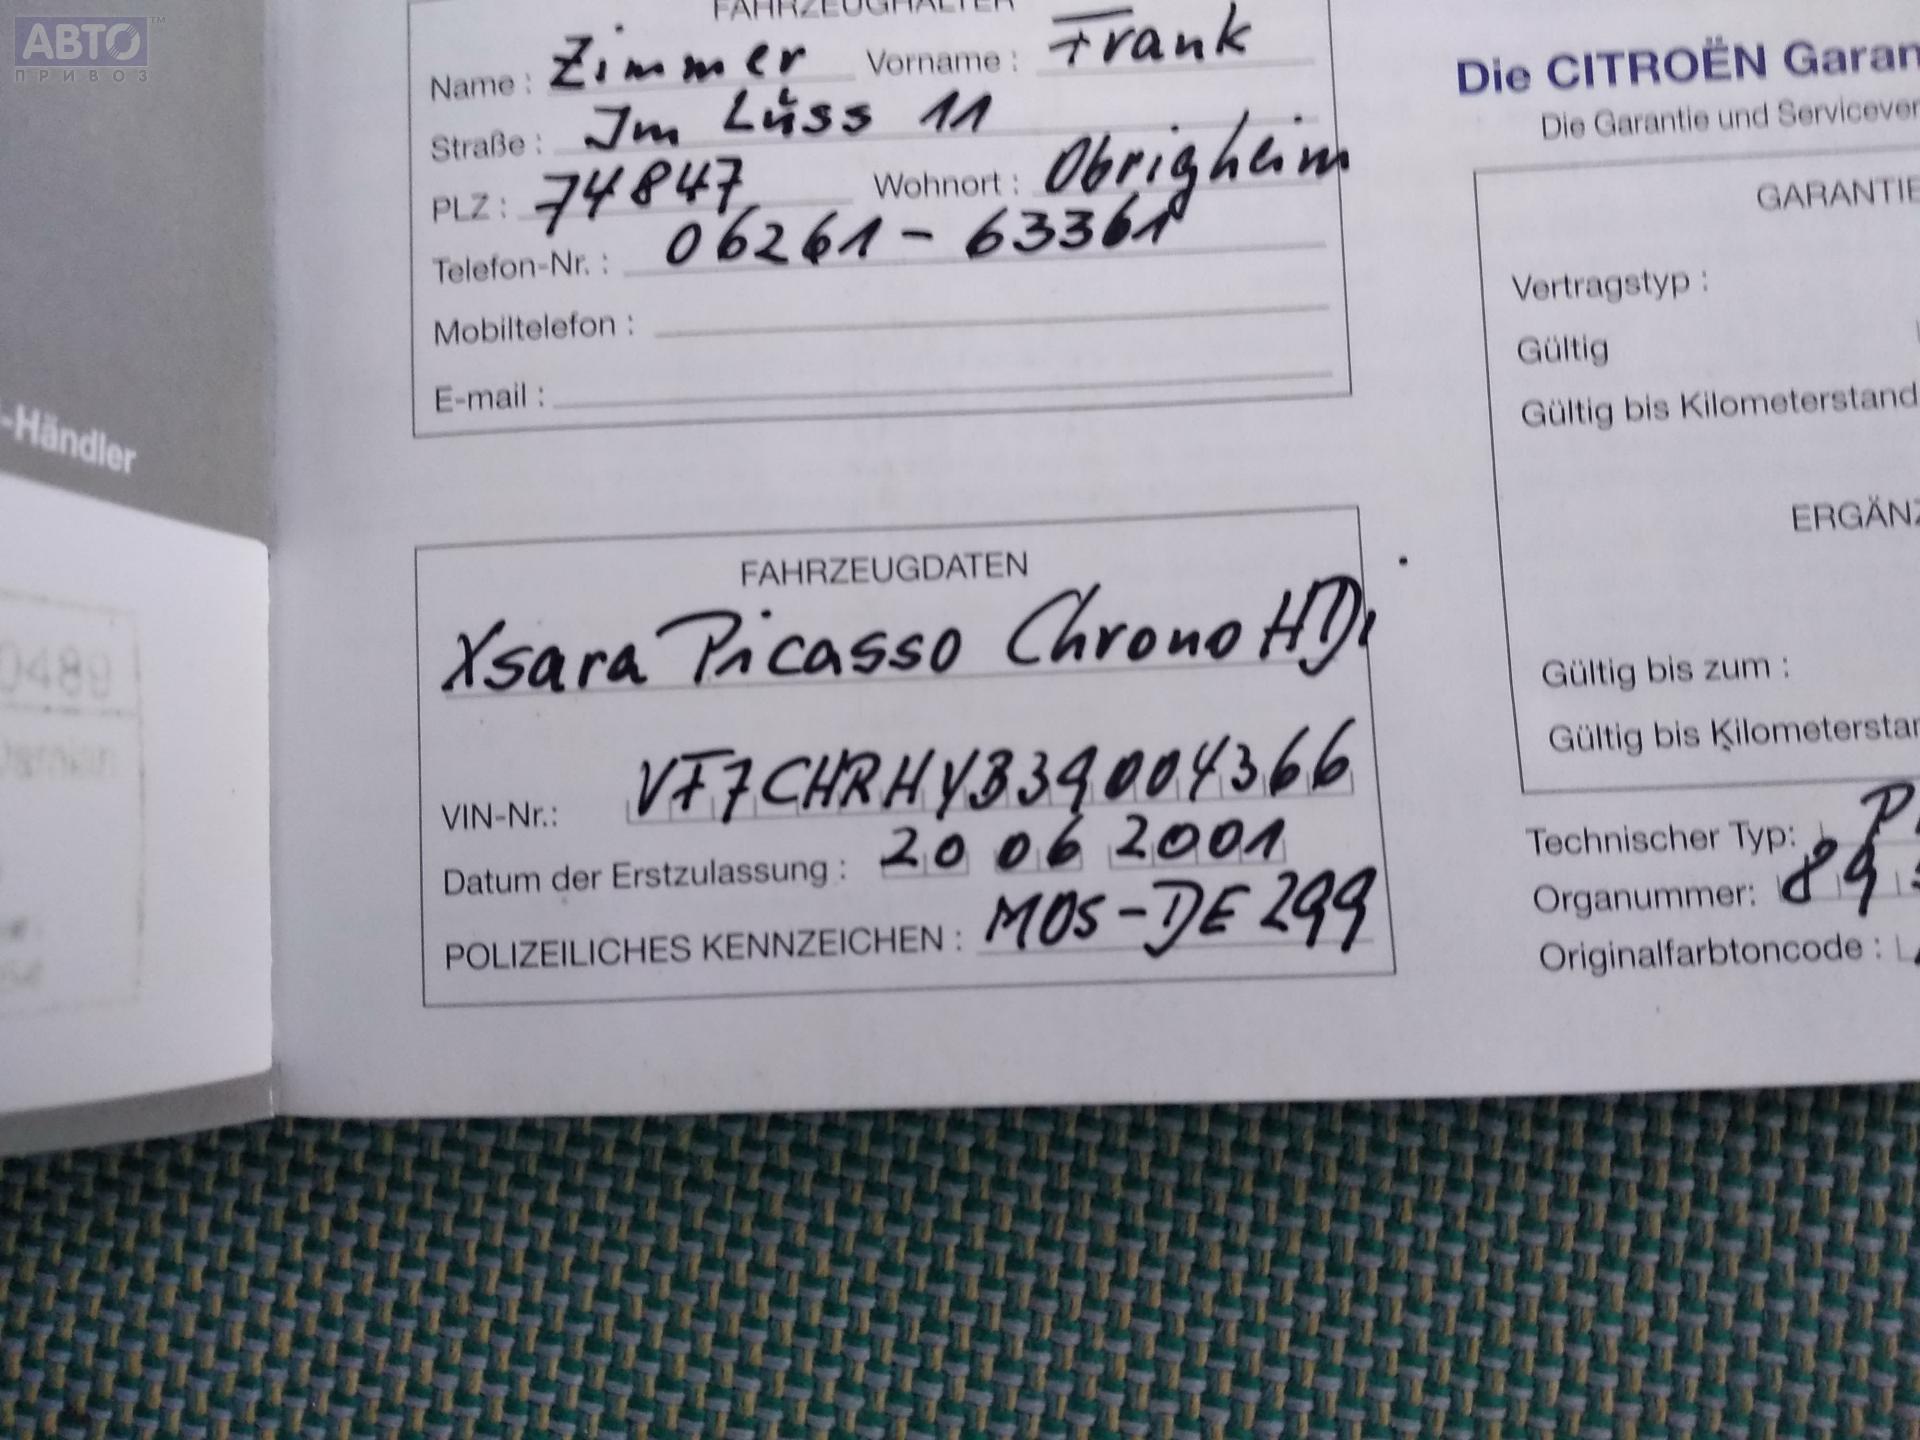 АВТО™
ПРИВОЗ
-Händler
0489
FAHRZEUGHALTER
Name : Zimmer Vorname : Frank
Straße : Im Lüss 11
PLZ : 74847 Wohnort : Obrigheim
Telefon-Nr. : 06261 - 63361
Mobiltelefon :
E-mail :
FAHRZEUGDATEN
Xsara Picasso Chrono HDi
VIN-Nr.: VF7CHRHYB39004366
Datum der Erstzulassung : 20 06 2001
POLIZEILICHES KENNZEICHEN : MOS-DE 299
Die CITROËN Garan
Die Garantie und Servicever
GARANTIE
Vertragstyp :
Gültig
Gültig bis Kilometerstand
ERGÄNZ
Gültig bis zum :
Gültig bis Kilometerstan
Technischer Typ:
Organummer: 89
Originalfarbtoncode :